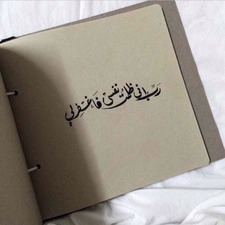 رب إني ظلمت نفسي فاغفر لي